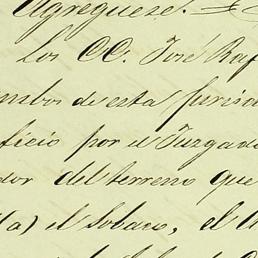 Agreguese.
los CC. José Raf
ambos de esta juris
ficio por el Juzgado
dor del terreno que
(a) el Lobaco, el